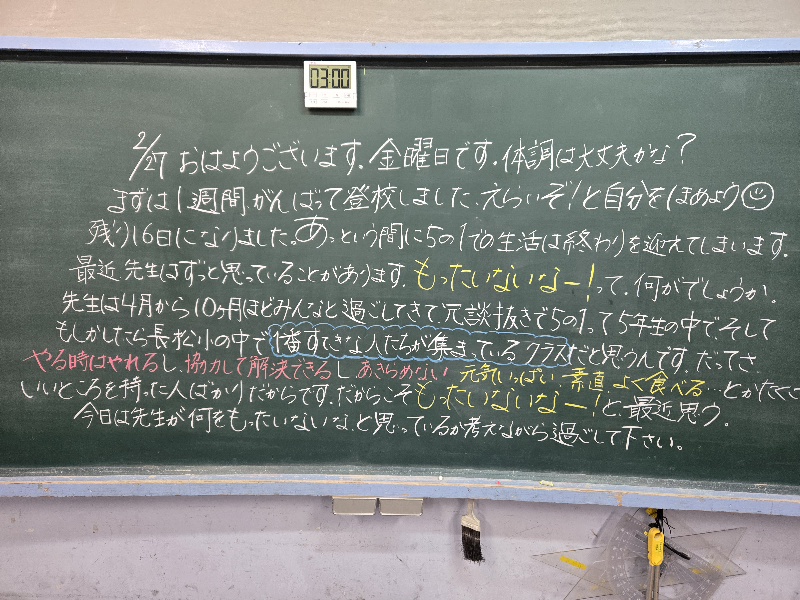 03:00
2/27 おはようございます。金曜日です。体調は大丈夫かな?
まずは1週間がんばって登校しました。えらいぞ!と自分をほめよう
残り16日になりました。あっという間に5の1での生活は終わりを迎えてしまいます。
最近先生はずっと思っていることがあります。もったいないなー!って。何がでしょうか。
先生は4月から10ヶ月ほどみんなと過ごしてきて冗談抜きで5の1って5年生の中でそして
もしかしたら長松小の中で1番すてきな人たちが集まっているクラスだと思うんです。だってさ
やる時はやれるし、協力して解決できるし あきらめない 元気いっぱい 素直 よく食べる…とかたくさ
いいところを持った人ばかりだからです。だからこそもったいないなー!と最近思う。
今日は先生が何をもったいないな、と思っているか考えながら過ごして下さい。